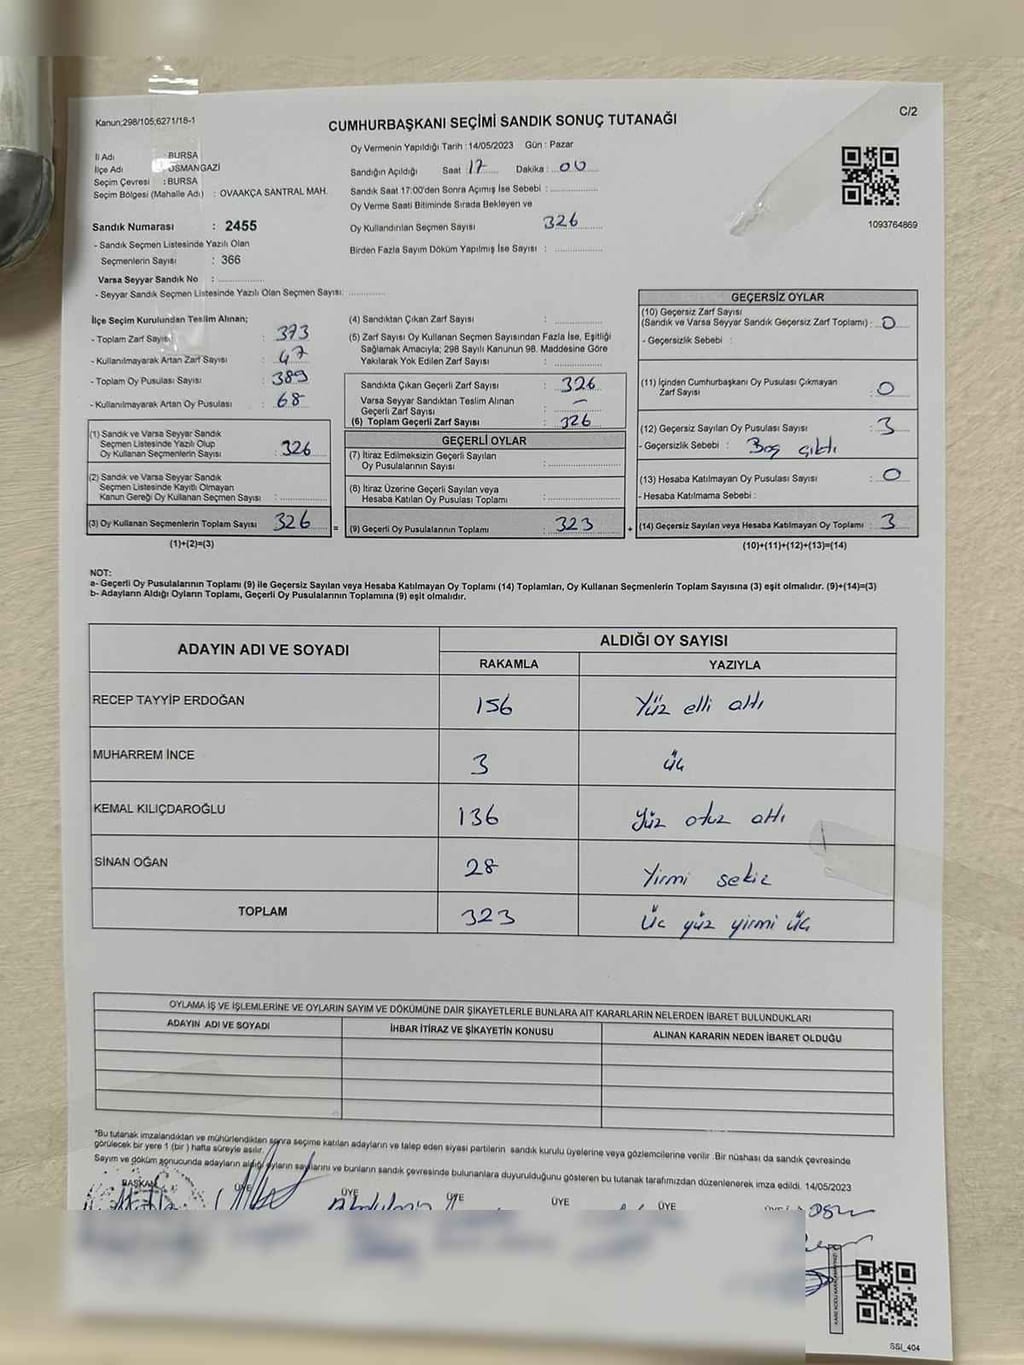 Kanun;298/105;6271/18-1
C/2
CUMHURBAŞKANI SEÇİMİ SANDIK SONUÇ TUTANAĞI
İl Adı : BURSA
İlçe Adı : OSMANGAZİ
Seçim Çevresi : BURSA
Seçim Bölgesi (Mahalle Adı) : OVAAKÇA SANTRAL MAH.
Sandık Numarası : 2455
- Sandık Seçmen Listesinde Yazılı Olan
Seçmenlerin Sayısı : 366
Varsa Seyyar Sandık No :
- Seyyar Sandık Seçmen Listesinde Yazılı Olan Seçmen Sayısı:
Oy Vermenin Yapıldığı Tarih : 14/05/2023 Gün : Pazar
Sandığın Açıldığı Saat : 17 Dakika : 00
Sandık Saat 17:00'den Sonra Açımış İse Sebebi :
Oy Verme Saati Bitiminde Sırada Bekleyen ve
Oy Kullandırılan Seçmen Sayısı 326
Birden Fazla Sayım Döküm Yapılmış İse Sayısı :
1093764869
İlçe Seçim Kurulundan Teslim Alınan;
- Toplam Zarf Sayısı : 373
- Kullanılmayarak Artan Zarf Sayısı : 47
- Toplam Oy Pusulası Sayısı : 389
- Kullanılmayarak Artan Oy Pusulası : 68
(1) Sandık ve Varsa Seyyar Sandık
Seçmen Listesinde Yazılı Olup
Oy Kullanan Seçmenlerin Sayısı : 326
(2) Sandık ve Varsa Seyyar Sandık
Seçmen Listesinde Kayıtlı Olmayan
Kanun Gereği Oy Kullanan Seçmen Sayısı :
(3) Oy Kullanan Seçmenlerin Toplam Sayısı 326
(1)+(2)=(3)
=
(4) Sandıktan Çıkan Zarf Sayısı :
(5) Zarf Sayısı Oy Kullanan Seçmen Sayısından Fazla İse, Eşitliği
Sağlamak Amacıyla; 298 Sayılı Kanunun 98. Maddesine Göre
Yakılarak Yok Edilen Zarf Sayısı :
Sandıkta Çıkan Geçerli Zarf Sayısı : 326
Varsa Seyyar Sandıktan Teslim Alınan
Geçerli Zarf Sayısı : –
(6) Toplam Geçerli Zarf Sayısı : 326
GEÇERLİ OYLAR
(7) İtiraz Edilmeksizin Geçerli Sayılan
Oy Pusulalarının Sayısı :
(8) İtiraz Üzerine Geçerli Sayılan veya
Hesaba Katılan Oy Pusulası Toplamı :
(9) Geçerli Oy Pusulalarının Toplamı : 323
+
GEÇERSİZ OYLAR
(10) Geçersiz Zarf Sayısı
(Sandık ve Varsa Seyyar Sandık Geçersiz Zarf Toplamı) : 0
- Geçersizlik Sebebi :
(11) İçinden Cumhurbaşkanı Oy Pusulası Çıkmayan
Zarf Sayısı : 0
(12) Geçersiz Sayılan Oy Pusulası Sayısı : 3
- Geçersizlik Sebebi : Boş çıktı
(13) Hesaba Katılmayan Oy Pusulası Sayısı : 0
- Hesaba Katılmama Sebebi :
(14) Geçersiz Sayılan veya Hesaba Katılmayan Oy Toplamı : 3
(10)+(11)+(12)+(13)=(14)
NOT:
a- Geçerli Oy Pusulalarının Toplamı (9) ile Geçersiz Sayılan veya Hesaba Katılmayan Oy Toplamı (14) Toplamları, Oy Kullanan Seçmenlerin Toplam Sayısına (3) eşit olmalıdır. (9)+(14)=(3)
b- Adayların Aldığı Oyların Toplamı, Geçerli Oy Pusulalarının Toplamına (9) eşit olmalıdır.
ADAYIN ADI VE SOYADI ALDIĞI OY SAYISI
RAKAMLA YAZIYLA
RECEP TAYYİP ERDOĞAN 156 Yüz elli altı
MUHARREM İNCE 3 üç
KEMAL KILIÇDAROĞLU 136 Yüz otuz altı
SİNAN OĞAN 28 Yirmi sekiz
TOPLAM 323 Üç yüz yirmi üç
OYLAMA İŞ VE İŞLEMLERİNE VE OYLARIN SAYIM VE DÖKÜMÜNE DAİR ŞİKAYETLERLE BUNLARA AİT KARARLARIN NELERDEN İBARET BULUNDUKLARI
ADAYIN ADI VE SOYADI İHBAR İTİRAZ VE ŞİKAYETİN KONUSU ALINAN KARARIN NEDEN İBARET OLDUĞU
*Bu tutanak imzalandıktan ve mühürlendikten sonra seçime katılan adayların ve talep eden siyasi partilerin sandık kurulu üyelerine veya gözlemcilerine verilir. Bir nüshası da sandık çevresinde
görülecek bir yere 1 (bir) hafta süreyle asılır.
Sayım ve döküm sonucunda adayların aldığı oyların sayılarını ve bunların sandık çevresinde bulunanlara duyurulduğunu gösteren bu tutanak tarafımızdan düzenlenerek imza edildi. 14/05/2023
BAŞKAN ÜYE ÜYE ÜYE ÜYE ÜYE
SSI_404